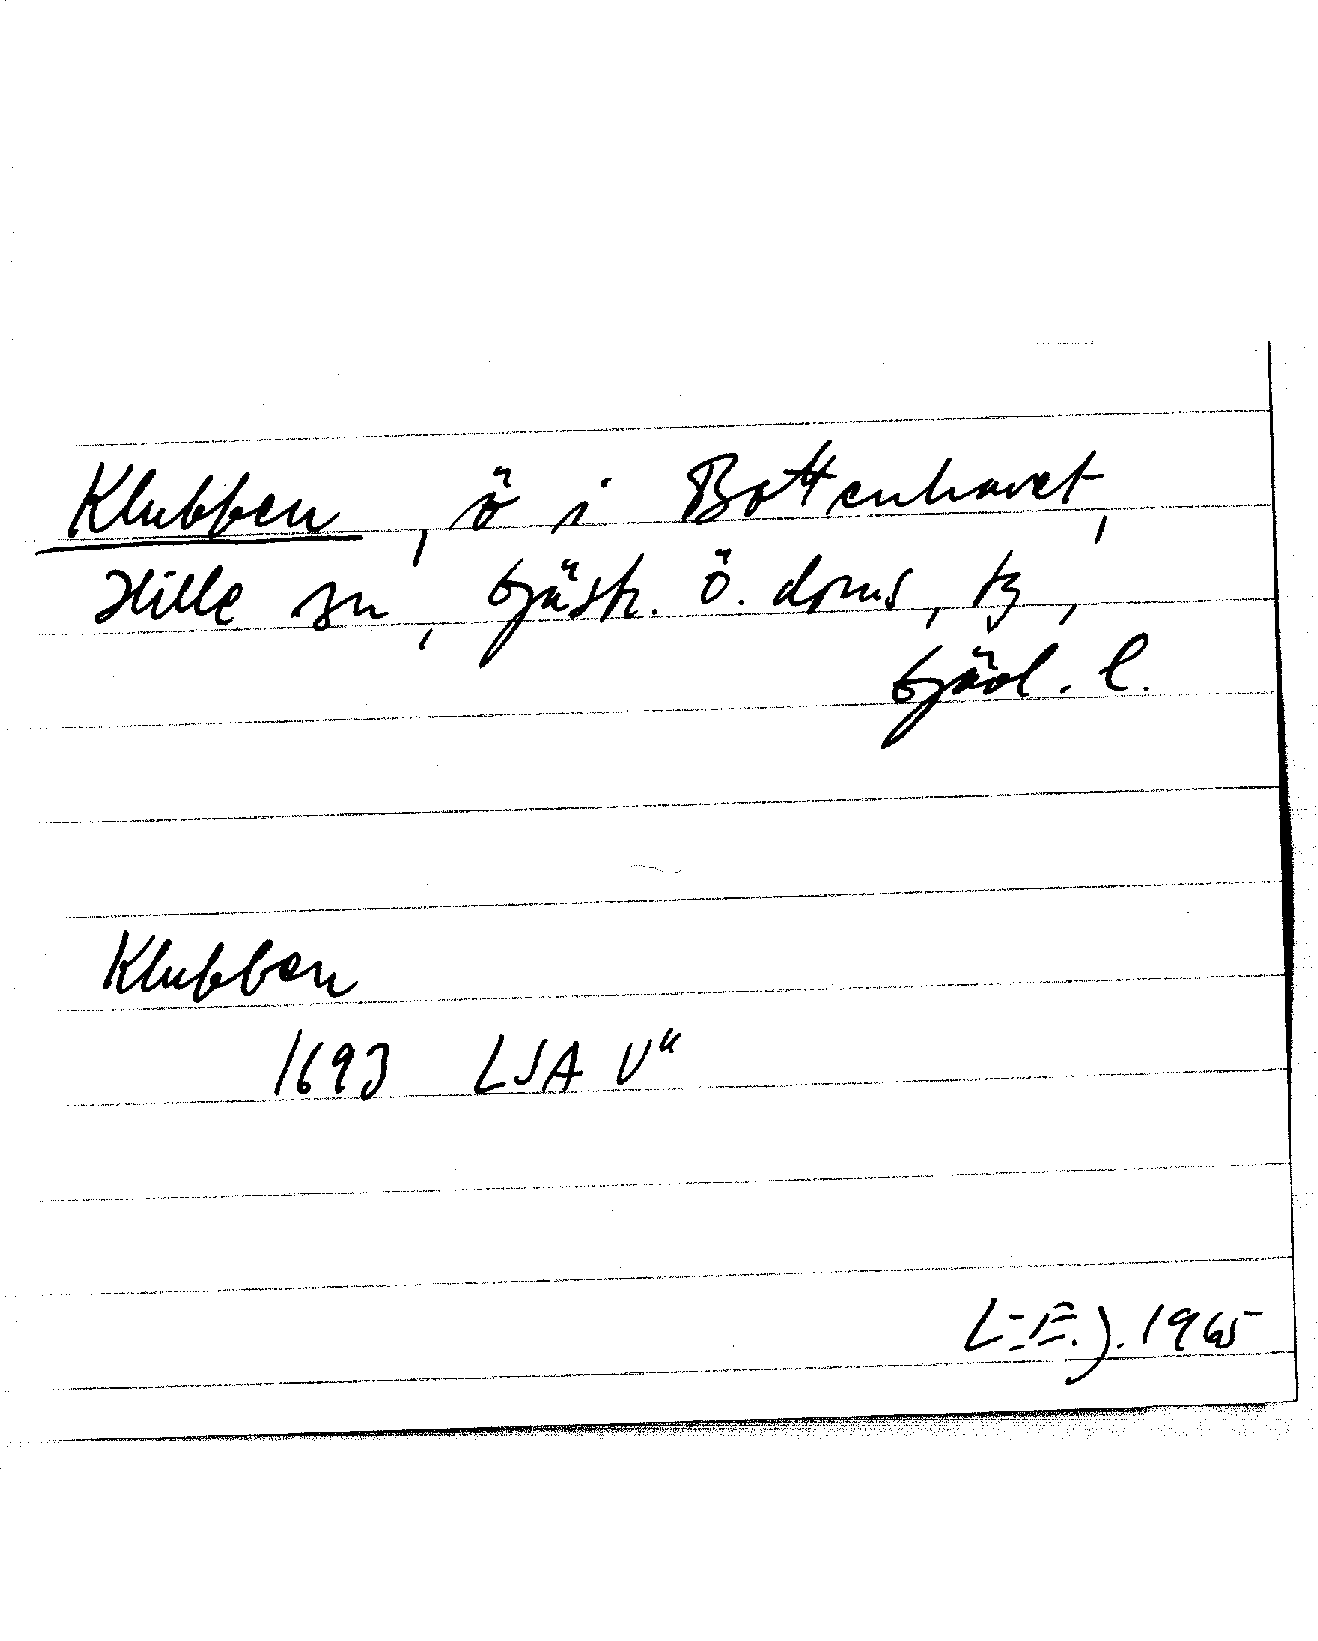 Klubben, ö i Bottenhavet,
Hille sn, Gästr. ö. doms, tg,
Gävl. l.
Klubben
1693 LSA V"
L-E. J. 1965